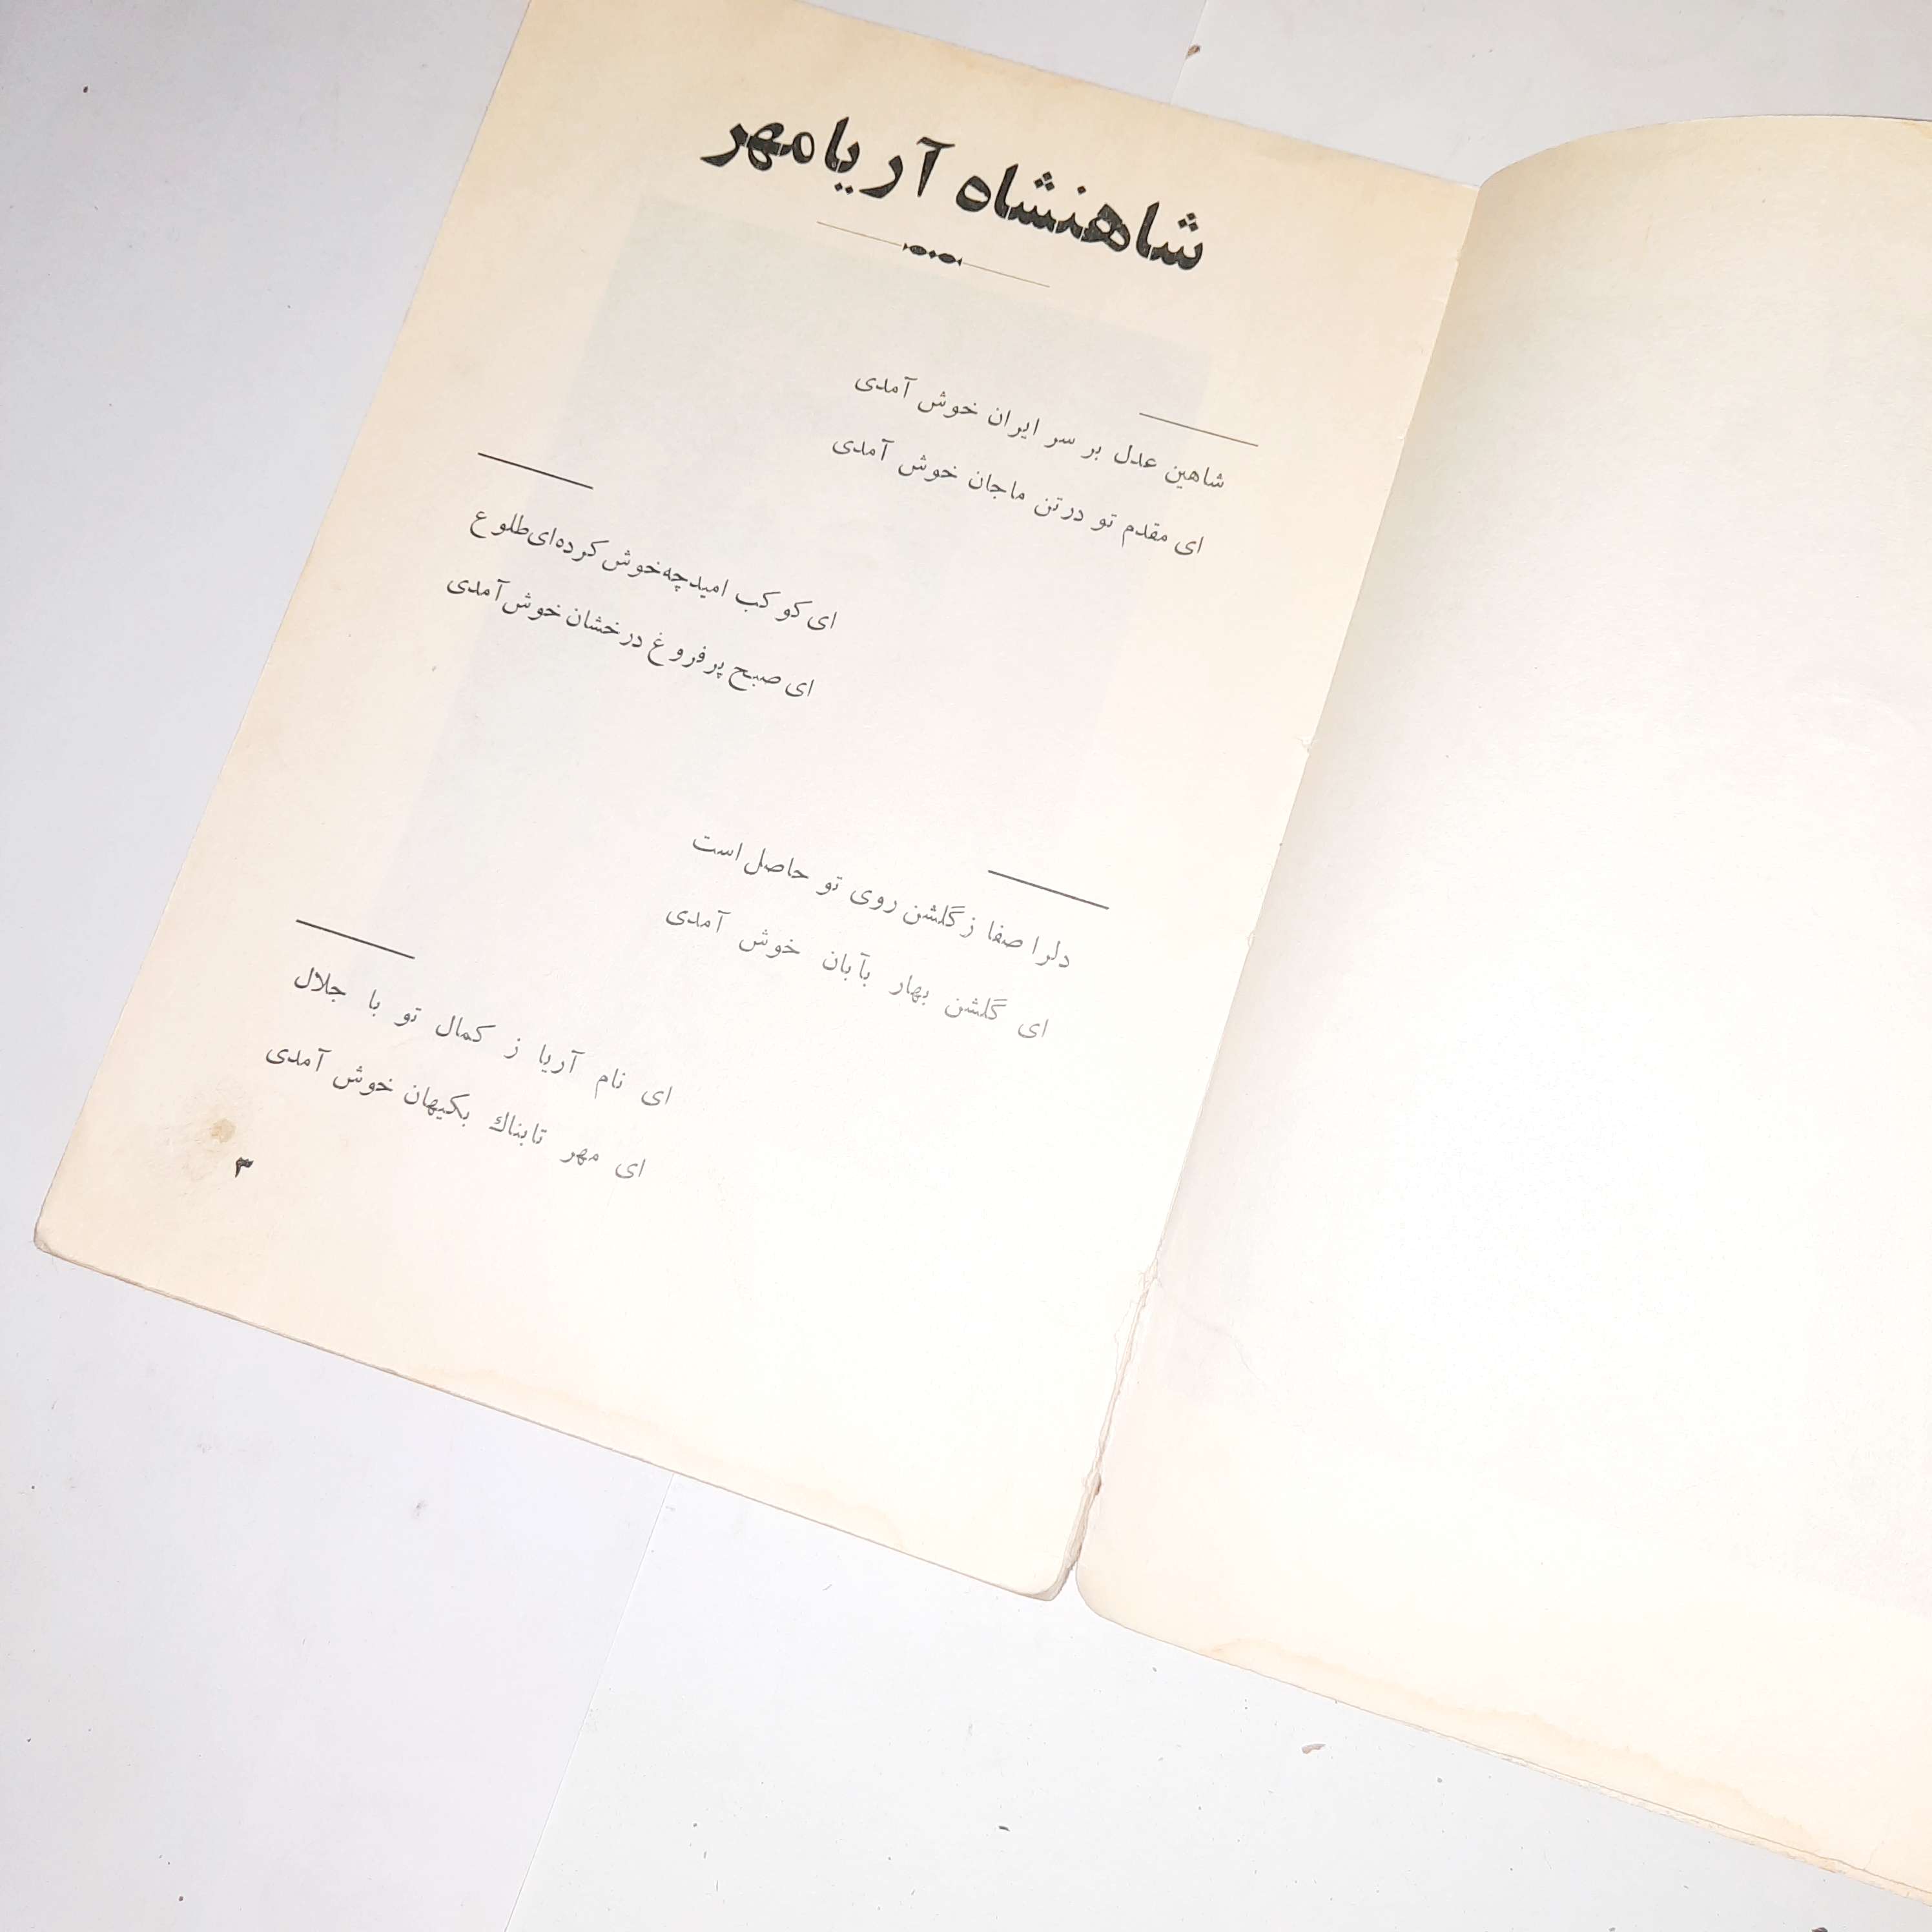 شاهنشاه آریامهر
شاهین عدل بر سر ایران خوش آمدی
ای مقدم تو درتن ماجان خوش آمدی
ای کوکب امیدچه‌خوش کرده‌ای‌طلوع
ای صبح پرفروغ درخشان خوش‌آمدی
دلرا صفا زگلشن روی تو حاصل است
ای گلشن بهار بآبان خوش آمدی
ای نام آریا ز کمال تو با جلال
ای مهر تابناك بکیهان خوش آمدی
۳